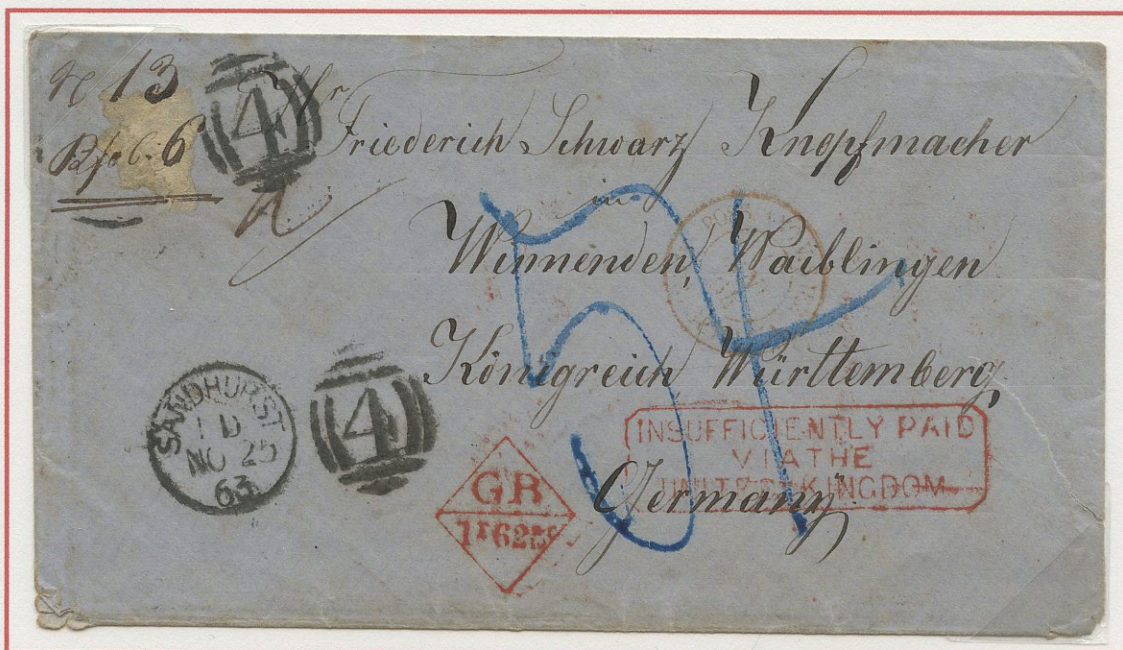 13
6
4
Friederich Schwarz Knopfmacher
in
Winnenden, Waiblingen
Königreich Württemberg,
SANDHURST
1 D
NO 25
63
4
GB
1F62
INSUFFICIENTLY PAID
VIA THE
UNITED KINGDOM
Germany